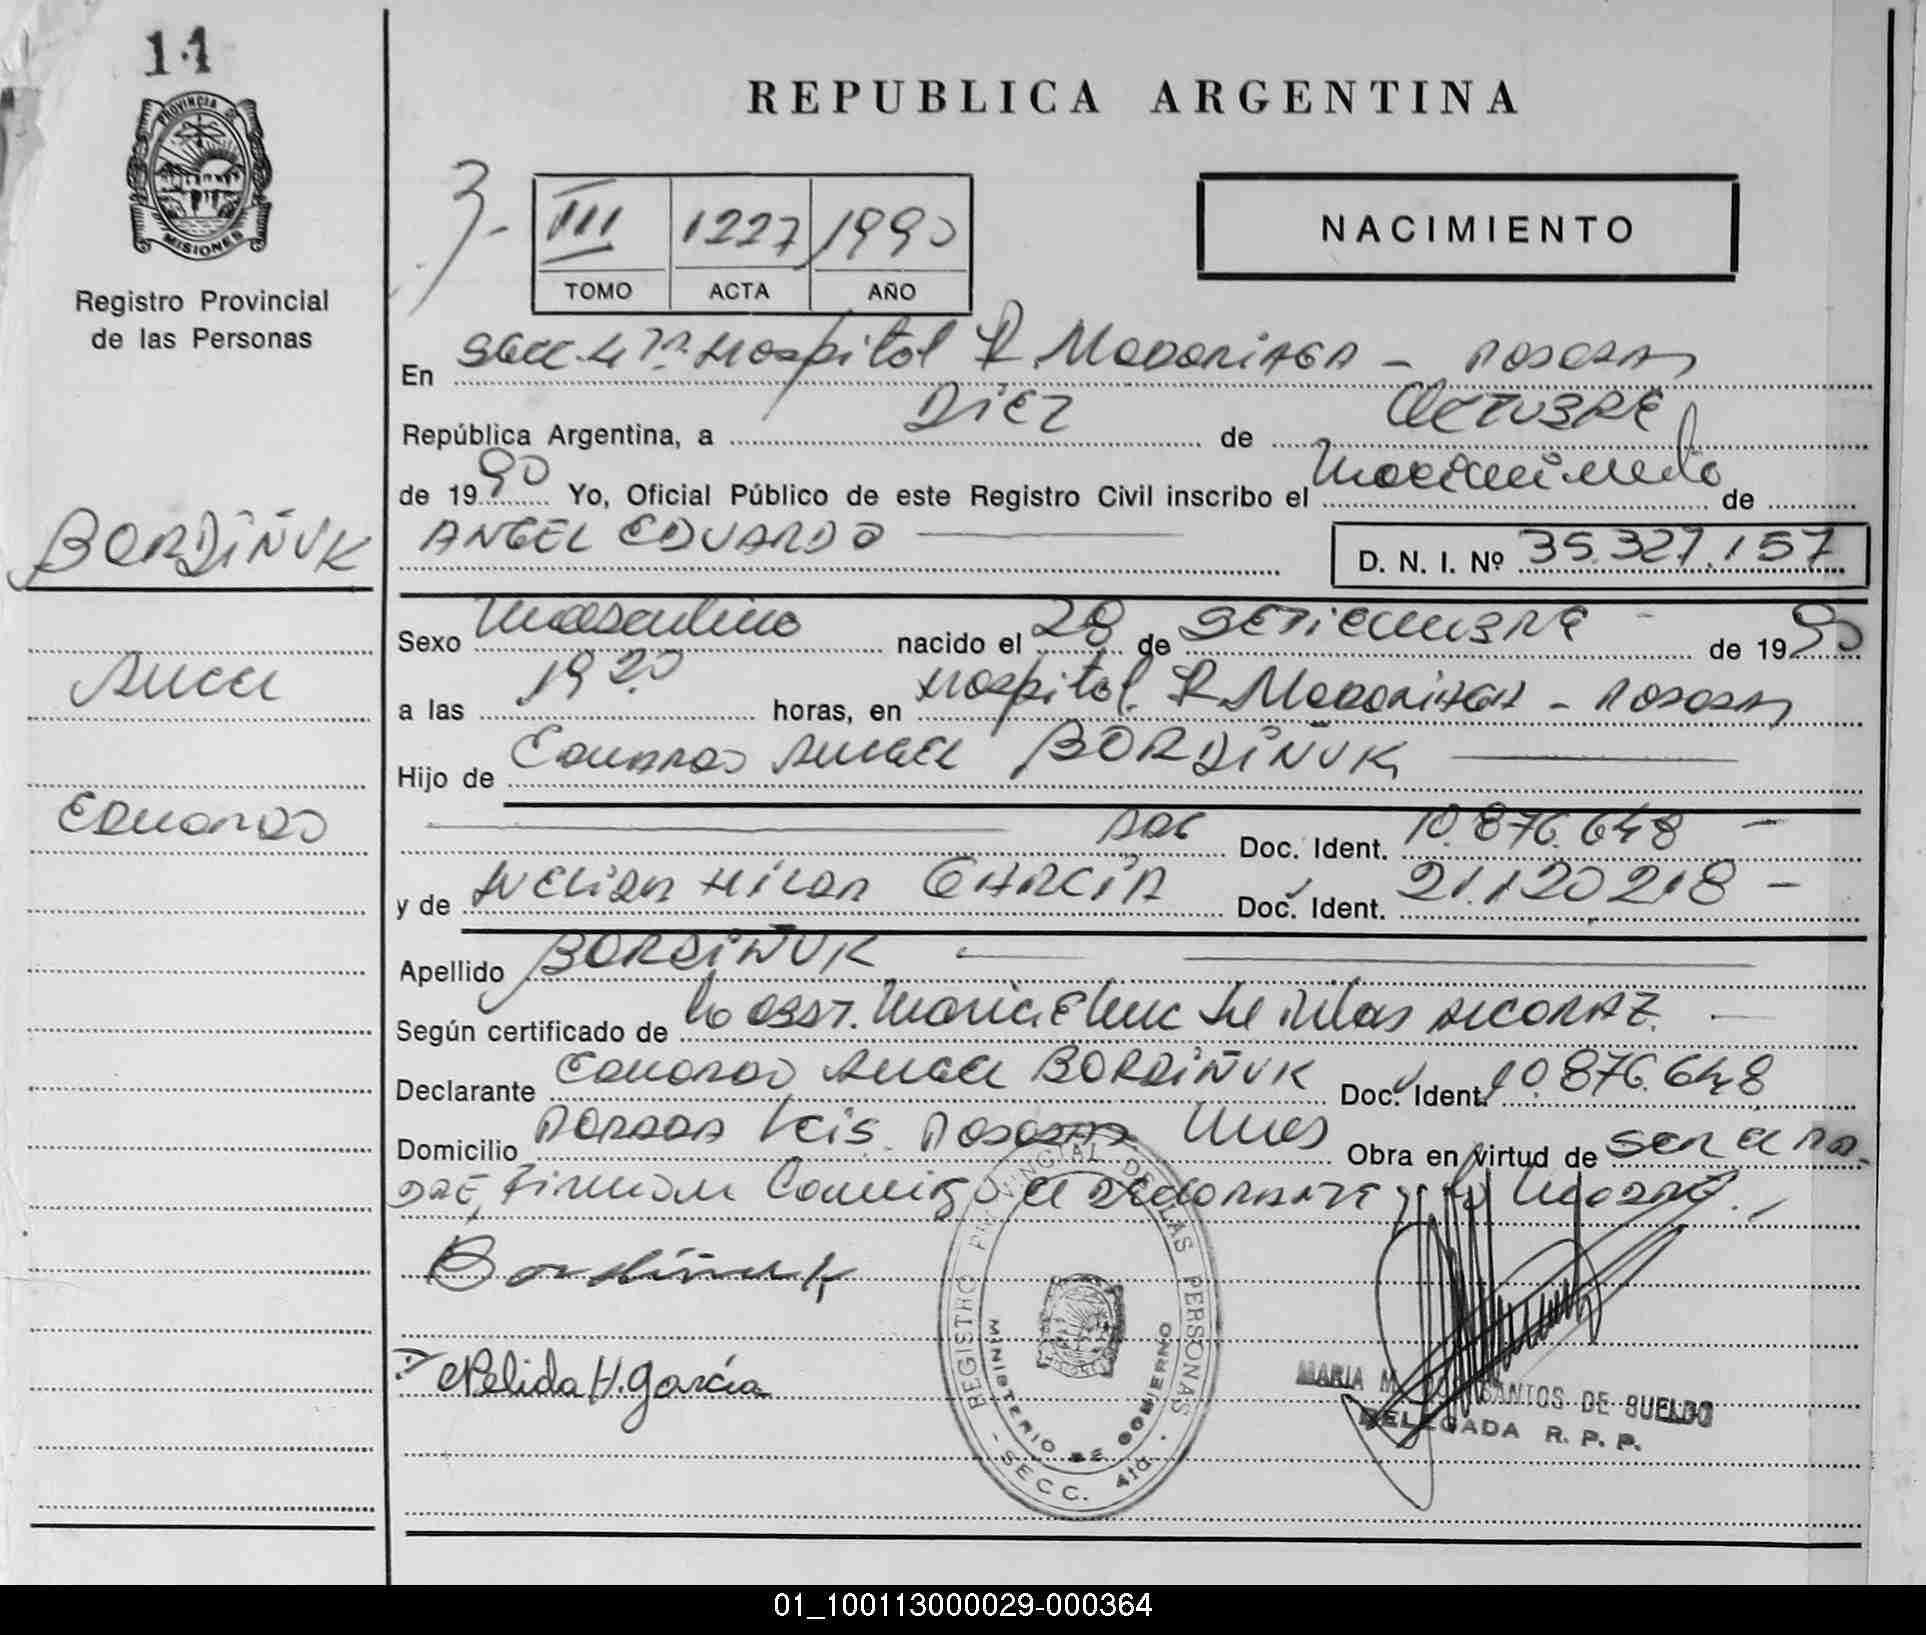 11
PROVINCIA DE
MISIONES
Registro Provincial
de las Personas
REPUBLICA ARGENTINA
3-
III 1227 1990
TOMO ACTA AÑO
NACIMIENTO
En Secc. 4ta. Hospital R. Madariaga - Posadas
República Argentina, a Diez de Octubre
de 1990 Yo, Oficial Público de este Registro Civil inscribo el nacimiento de
ANGEL EDUARDO
D. N. I. Nº 35.327.157
BORDIÑUK
Angel
Eduardo
Sexo Masculino nacido el 28 de SETIEMBRE de 1990
a las 19 20 horas, en Hospital R. Madariaga - Posadas
Hijo de Eduardo Angel BORDIÑUK
Doc. Ident. 10.876.648 -
y de Hilda GARCÍA Doc. Ident. 21.120.218 -
Apellido BORDIÑUK
Según certificado de la Obst. Maria Elena
Declarante Eduardo Angel BORDIÑUK Doc. Ident. 10.876.648
Domicilio Posadas Mnes Obra en virtud de ser el pa-
dre, firman conmigo el declarante y la madre.
Bordiñuk
Nelida H. García
REGISTRO PROVINCIAL DE LAS PERSONAS
MINISTERIO DE GOBIERNO
- SECC. 4ta. -
MARIA M. SANTOS DE SUELDO
DELEGADA R. P. P.
01_100113000029-000364